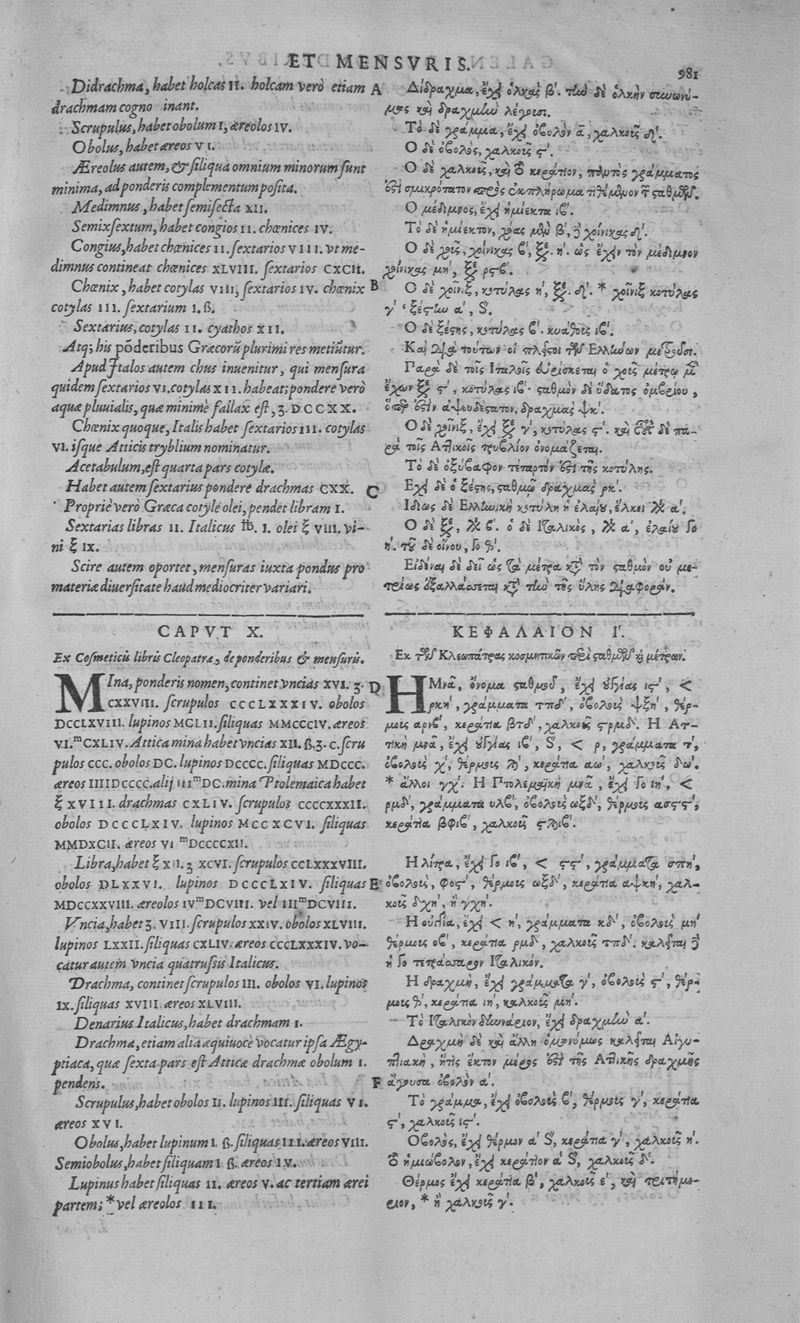 ET MENSVRIS.
981
Didrachma, habet holcas II. holcam verò etiam
drachmam cogno inant.
Scrupulus, habet obolum I, æreolos IV.
Obolus, habet æreos VI.
Æreolus autem, & siliqua omnium minorum sunt
minima, ad ponderis complementum posita.
Medimnus, habet semisecta XII.
Semixsextum, habet congios II. chœnices IV.
Congius, habet chœnices II. sextarios VIII. vt me-
dimnus contineat chœnices XLVIII. sextarios CXCII.
Chœnix, habet cotylas VIII, sextarios IV. chœnix
cotylas III. sextarium I. ß.
Sextarius, cotylas II. cyathos XII.
Atq; his põderibus Græcorũ plurimi res metiũtur.
Apud Italos autem chus inuenitur, qui mensura
quidem sextarios VI. cotylas XII. habeat; pondere verò
aquæ pluuialis, quæ minimè fallax est, ʒ. DCCXX.
Chœnix quoque, Italis habet sextarios III. cotylas
VI. isque Atticis tryblium nominatur.
Acetabulum, est quarta pars cotylæ.
Habet autem sextarius pondere drachmas CXX.
Propriè verò Græca cotyle olei, pendet libram I.
Sextarias libras II. Italicus ℔. I. olei ℥ VIII. vi-
ni ℥ IX.
Scire autem oportet, mensuras iuxta pondus pro
materiæ diuersitate haud mediocriter variari.
A
B
C
Δίδραχμα, ἔχει ὁλκὰς β'. τὴν δὲ ὁλκὴν συνωνύ-
μως καὶ δραχμὴν λέγουσι.
Τὸ δὲ γράμμα, ἔχει ὀβολὸν ἅ, χαλκοῦς δ'.
Ο δὲ ὀβολὸς, χαλκοῦς ϛ'.
Ο δὲ χαλκοῦς, καὶ τὸ κεράτιον, παντὸς γράμματός
ἐστι σμικρότατον πρὸς ἐκπλήρωμα τιθέμενον τ σταθμῶν.
Ο μέδιμνος, ἔχει ἡμίεκτα ιβ'.
Τὸ δὲ ἡμίεκτον, χοας μὲν β', ἢ χοίνικας δ'.
Ο δὲ χοῦς, χοίνικας β', ξε. η'. ὡς ἔχειν τὸν μέδιμνον
χοίνικας μη', ξε ρϟβ'.
Ο δὲ χοῖνιξ, κοτύλας η', ξε. δ'. * χοῖνιξ κοτύλας
γ' ξέστην α', S.
Ο δὲ ξέστης, κοτύλας β'. κυάθους ιβ'.
Καὶ διὰ τούτων οἱ πλεῖστοι τῶν Ελλήνων μετροῦσι.
Παρὰ δὲ τοῖς Ιταλοῖς εὑρίσκεται ὁ χοῦς μέτρῳ μὲ
ἔχων ξε ϛ', κοτύλας ιβ'· σταθμὸν δὲ ὕδατος ὀμβρίου,
ὅπερ ἐστὶν ἀψευδέστατον, δραχμὰς ψκ'.
Ο δὲ χοῖνιξ, ἔχει ξε γ', κοτύλας ϛ'. καὶ ἐστὶ δὲ πα-
ρὰ τοῖς Ατλικοῖς τρυβλίον ὀνομάζεται.
Τὸ δὲ ὀξύβαφον τέταρτόν ἐστι τῆς κοτύλης.
Εχει δὲ ὁ ξέστης, σταθμῷ δραχμὰς ρκ'.
Ιδίως δὲ Ελληνικὴ κοτύλη ἡ ἐλαίου, ἕλκει λι α'.
Ο δὲ ξε, λι β'. ὁ δὲ Ιταλικὸς, λι α', ἐλαίου Γο
η'. τοῦ δὲ οἴνου, Γο θ'.
Εἰδέναι δὲ δεῖ ὡς τὰ μέτρα κατὰ τὸν σταθμὸν οὐ με-
τρίως ἐξαλλάσσεται κατὰ τὴν τῆς ὕλης διαφοράν.
CAPVT X.
Ex Cosmeticis libris Cleopatræ, de ponderibus & mensuris.
MIna, ponderis nomen, continet vncias XVI. ʒ.
CXXVIII. scrupulos CCCLXXXIV. obolos
DCCLXVIII. lupinos MCLII. siliquas MMCCCIV. æreos
VI.ᵐCXLIV. Attica mina habet vncias XII. ß. ʒ. C. scru
pulos CCC. obolos DC. lupinos DCCCC. siliquas MDCCC.
æreos IIIIDCCCC. alij IIIᵐDC. mina Ptolemaica habet
℥ XVIII. drachmas CXLIV. scrupulos CCCCXXXII.
obolos DCCCLXIV. lupinos MCCXCVI. siliquas
MMDXCII. æreos VIᵐDCCCCXII.
Libra, habet ℥ XII. ʒ XCVI. scrupulos CCLXXXVIII.
obolos DLXXVI. lupinos DCCCLXIV. siliquas
MDCCXXVIII. æreolos IVᵐDCVIII. vel IIIᵐDCVIII.
Vncia, habet ʒ. VIII. scrupulos XXIV. obolos XLVIII.
lupinos LXXII. siliquas CXLIV. æreos CCCLXXXIV. vo-
catur autem vncia quatrussis Italicus.
Drachma, continet scrupulos III. obolos VI. lupinos
IX. siliquas XVIII æreos XLVIII.
Denarius Italicus, habet drachmam I.
Drachma, etiam alia æquiuocè vocatur ipsa Ægy-
ptiaca, quæ sexta pars est Atticæ drachmæ obolum I.
pendens.
Scrupulus, habet obolos II. lupinos III. siliquas VI.
æreos XVI.
Obolus, habet lupinum I. ß. siliquas III. æreos VIII.
Semiobolus, habet siliquam I ß. æreos IV.
Lupinus habet siliquas II. æreos V. ac tertiam ærei
partem; * vel æreolos III.
D
E
F
ΚΕΦΑΛΑΙΟΝ Ι'.
Εκ τῶν Κλεωπάτρας κοσμητικῶν περὶ σταθμῶν καὶ μέτρων.
Η Μνᾶ, ὄνομα σταθμοῦ, ἔχει οὐγγίας ις', <
ρκη', γράμματα τπδ', ὀβολοὺς ψξη', θέρ-
μους αρνβ', κεράτια βτδ', χαλκοῦς ϛρμδ'. Η Ατ-
τικὴ μνᾶ, ἔχει οὐγγίας ιβ', S, < ρ, γράμματα τ',
ὀβολοὺς χ', θέρμους ϡ', κεράτια αω', χαλκοῦς δω'.
* ἄλλοι γχ'. Η Πτολεμαϊκὴ μνᾶ, ἔχει Γο ιη', <
ρμδ', γράμματα υλβ', ὀβολοὺς ωξδ', θέρμους ασϟϛ',
κεράτια βφϟβ', χαλκοῦς ϛϡιβ'.
Η λίτρα, ἔχει Γο ιβ', < ϟϛ', γράμματα σπη',
ὀβολοὺς, φοϛ', θέρμους ωξδ', κεράτια αψκη', χαλ-
κοῦς δχη', ἢ γχη'.
Η οὐγγία, ἔχει < η', γράμματα κδ', ὀβολοὺς μη'
θέρμους οβ', κεράτια ρμδ', χαλκοῦς τπδ'. καλεῖται ἢ
ἡ Γο τετράσσαρον Ιταλικόν.
Η δραχμὴ, ἔχει γράμματα γ', ὀβολοὺς ϛ', θέρ-
μους θ', κεράτια ιη', χαλκοῦς μη'.
Τὸ Ιταλικὸν δηνάριον, ἔχει δραχμὴν α'.
Δραχμὴ δὲ καὶ ἄλλη ὁμωνύμως καλεῖται Αἰγυ-
πτιακὴ, ἥτις ἕκτον μέρος ἐστὶ τῆς Ατλικῆς δραχμῆς
ἄγουσα ὀβολὸν α'.
Τὸ γράμμα, ἔχει ὀβολοὺς β', θέρμους γ', κεράτια
ϛ', χαλκοῦς ις'.
Οβολὸς, ἔχει θέρμον α' S, κεράτια γ', χαλκοῦς η'.
Τὸ ἡμιώβολον, ἔχει κεράτιον α' S, χαλκοῦς δ'.
Θέρμος ἔχει κεράτια β', χαλκοῦς ε', καὶ τριτημό-
ριον, * ἢ χαλκοῦς γ'.